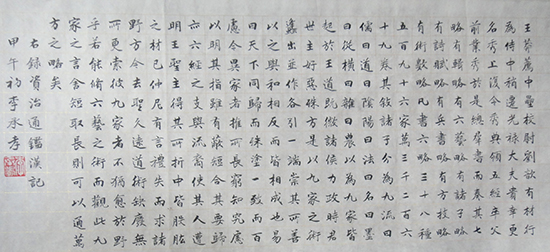 王莽薦中壘校尉劉歆有材行
為侍中稍遷光祿大夫貴幸更
名秀上復令秀典領五經卒父
前業秀於是總群書而奏其七
略有輯略有六藝略有諸子略
有詩賦略有兵書略有方技略
有術數略凡書六略三十八種
五百九十六家萬三千二百六
十九卷其敘諸子分為九流曰
儒曰道曰陰陽曰法曰名曰墨
曰從橫曰雜曰農以為九家皆
起於王道既微諸侯力政時君
世主好惡殊方是以九家之術
蠭出並作各引一端崇其所善
相成也易
曰天下同歸而殊塗一致而百
慮今異家者推所長窮知究慮
以明其指
亦六經之支與流裔使其人遭
明王聖主得其所折中皆股肱
之材已仲尼有言禮失而求諸
野方今去聖久遠道術缺廢無
所更索彼九家者不猶愈於野
乎若能修六藝之術而觀此九
家之言舍短取長則可以通萬
方之略矣
右錄資治通鑑漢記
甲午初李承孝